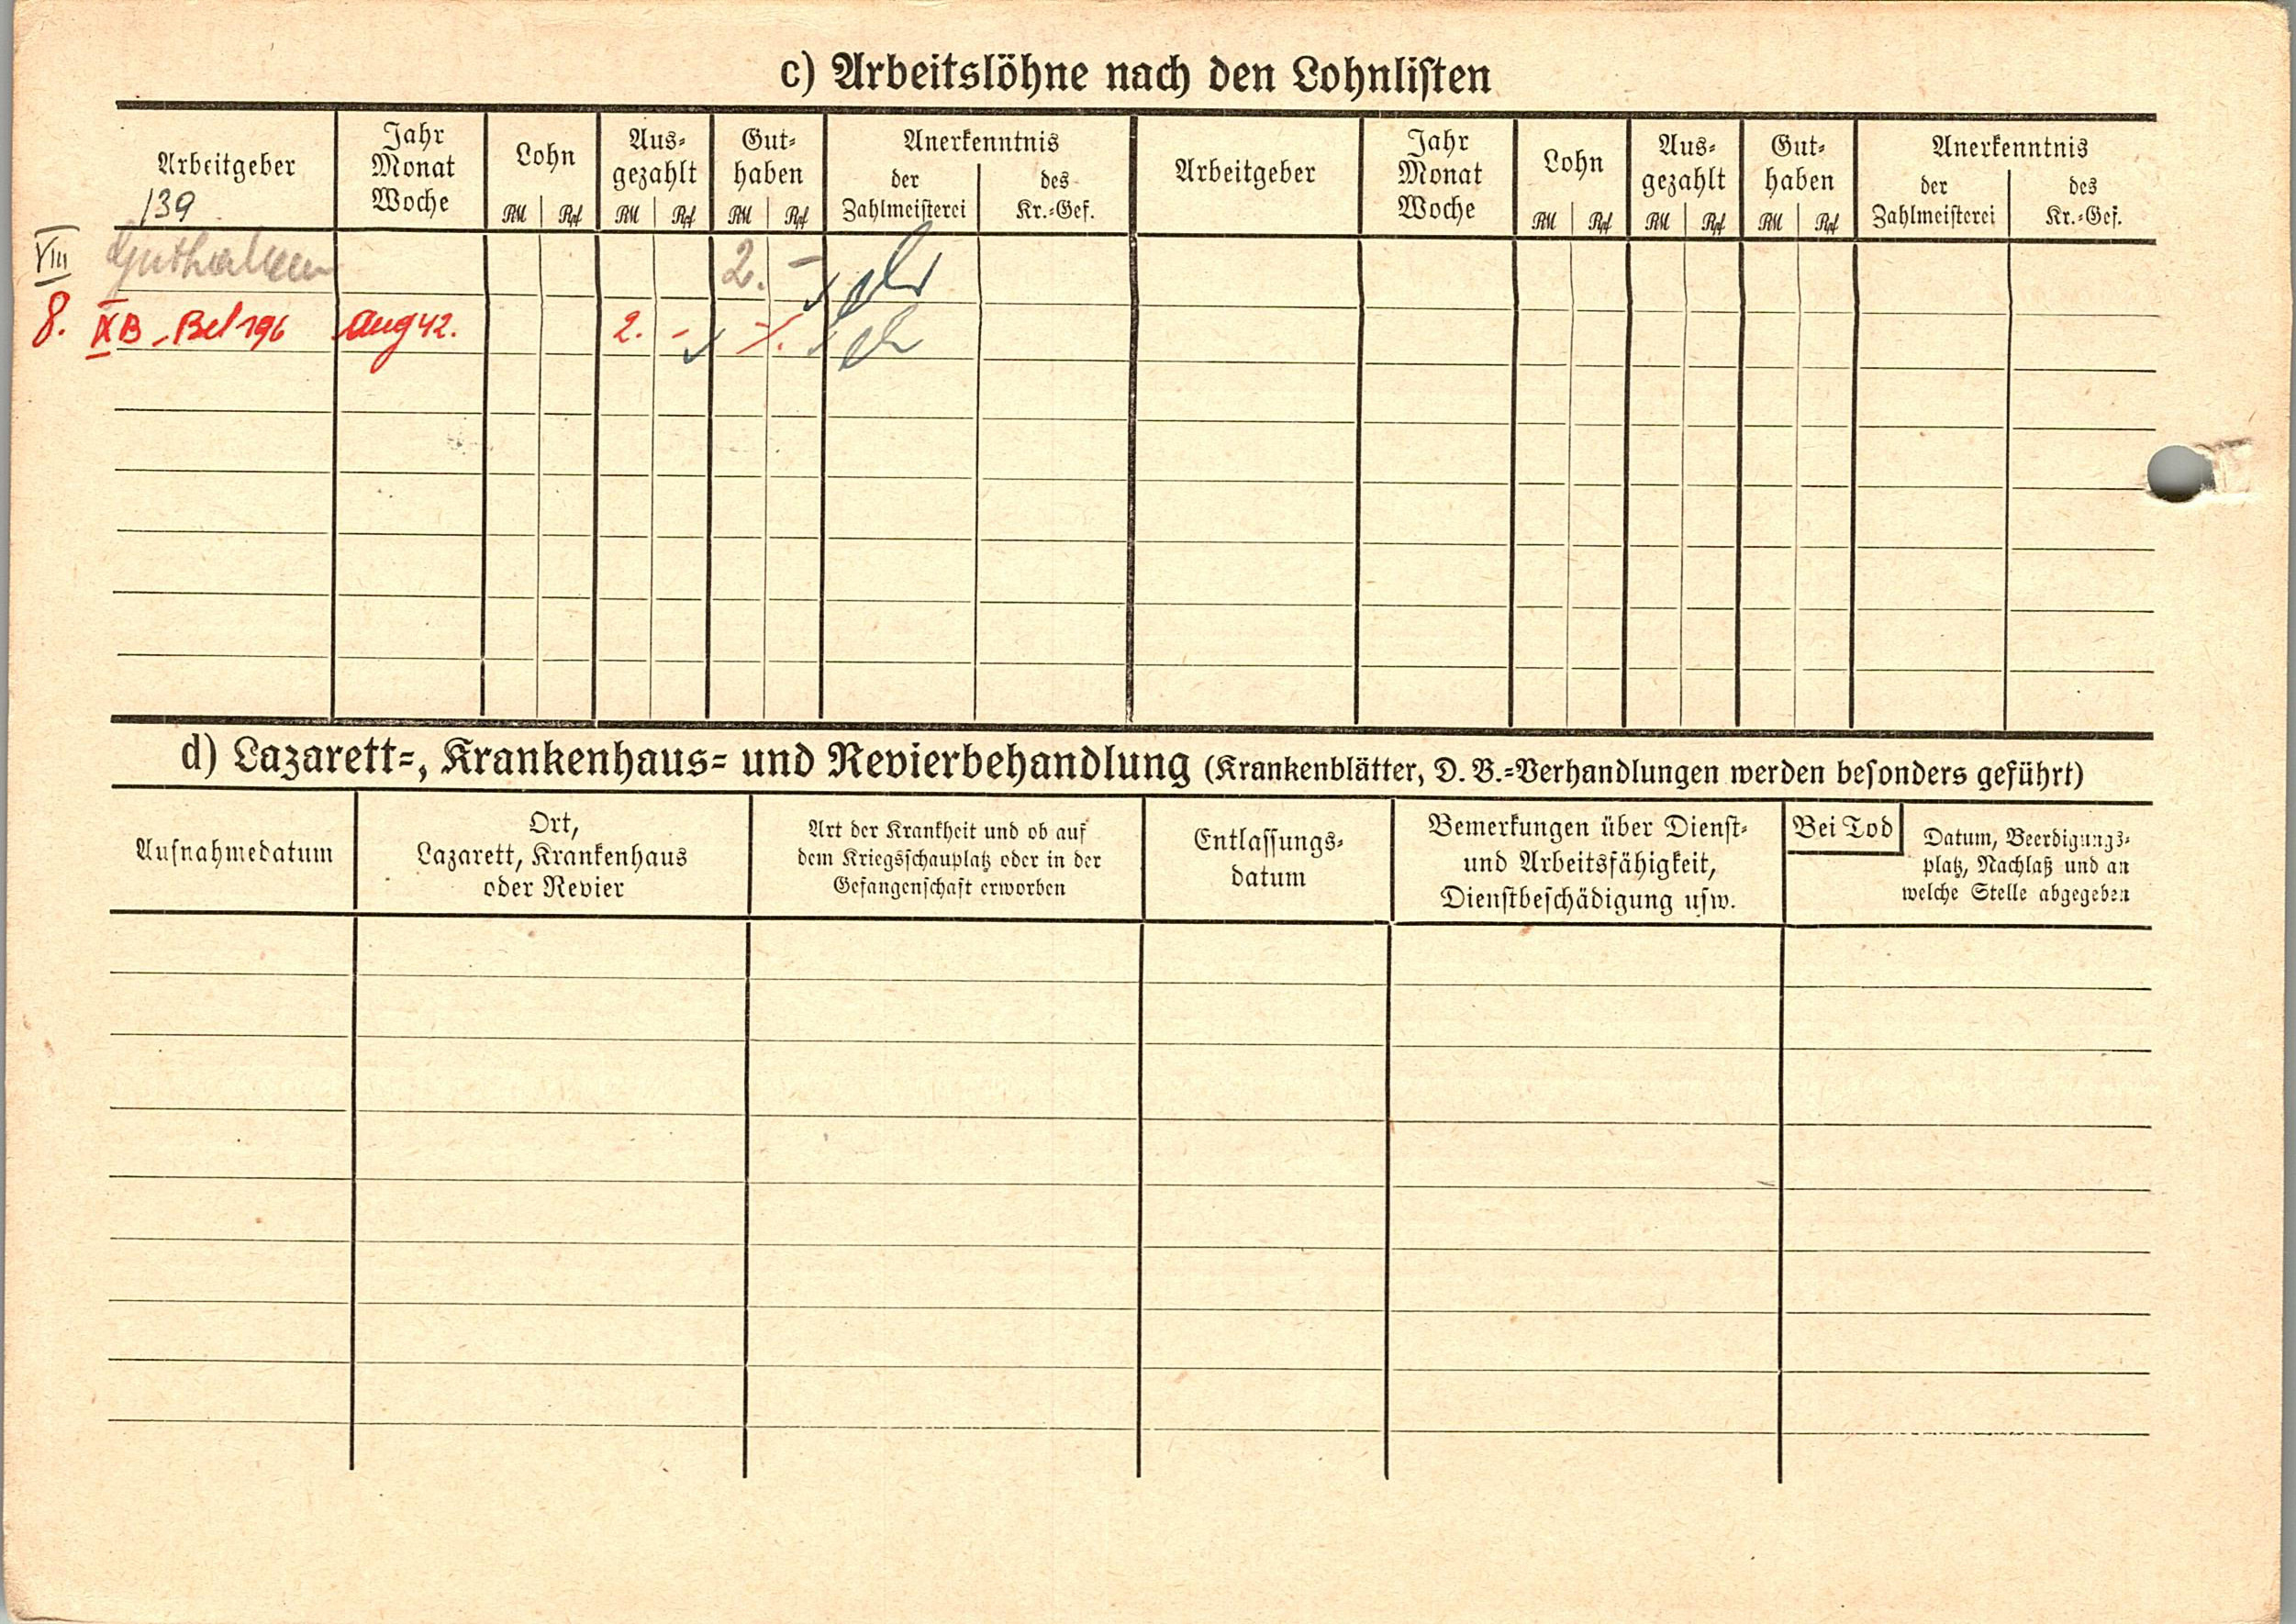 c) Arbeitslöhne nach den Lohnlisten
Arbeitgeber
139
Jahr
Monat
Woche
Lohn
RM Rpf
Aus-
gezahlt
RM Rpf
Gut-
haben
RM Rpf
Anerkenntnis
der
Zahlmeisterei
des
Kr.-Gef.
Arbeitgeber
Jahr
Monat
Woche
Lohn
RM Rpf
Aus-
gezahlt
RM Rpf
Gut-
haben
RM Rpf
Anerkenntnis
der
Zahlmeisterei
des
Kr.-Gef.
VIII Guthaben 2. -
8. XB - Bel 196 Aug 42. 2. -
d) Lazarett-, Krankenhaus- und Revierbehandlung (Krankenblätter, D. B.-Verhandlungen werden besonders geführt)
Aufnahmedatum
Ort,
Lazarett, Krankenhaus
oder Revier
Art der Krankheit und ob auf
dem Kriegsschauplatz oder in der
Gefangenschaft erworben
Entlassungs-
datum
Bemerkungen über Dienst-
und Arbeitsfähigkeit,
Dienstbeschädigung usw.
Bei Tod
Datum, Beerdigungs-
platz, Nachlaß und an
welche Stelle abgegeben